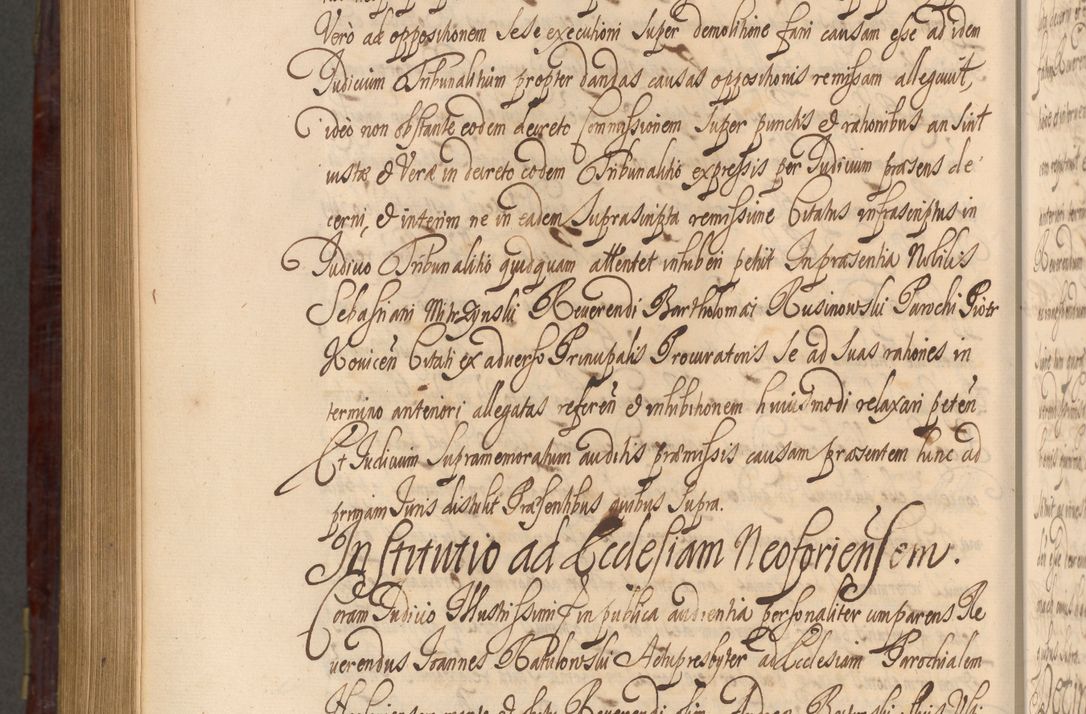 Verò ad oppositionem sese executioni super demolitione fani causam esse ad idem
Judicium Tribunalitium propter dandas causas oppositionis remissam allegavit,
ideò non obstante eodem decreto Commissionem super punctis & rationibus an sint
iustæ & Veræ in decreto eodem Tribunalitio expressis per Judicium præsens de
cerni, & interim ne in eadem suprascripta remissione Citatus infrascriptus in
Judicio Tribunalitio quidquam attentet inhiberi petiit In præsentia Nobilis
Sebastiani Reverendi Bartholomæi Rusinowski Parochi Piotr
Kovicen̄ Citati ex adverso Principalis Procuratoris se ad suas rationes in
termino anteriori allegatas referen̄ & inhibitionem huiusmodi relaxari peten̄
Et Judicium supramemoratum auditis præmissis causam præsentem hinc ad
primam Juris distulit Præsentibus quibus supra.
Institutio ad Ecclesiam Neoforiensem.
Coram Judicio Illustrissimi in publica audientia personaliter comparens Re
verendus Joannes Archipresbyter ad Ecclesiam Parochialem
Reverendi olim